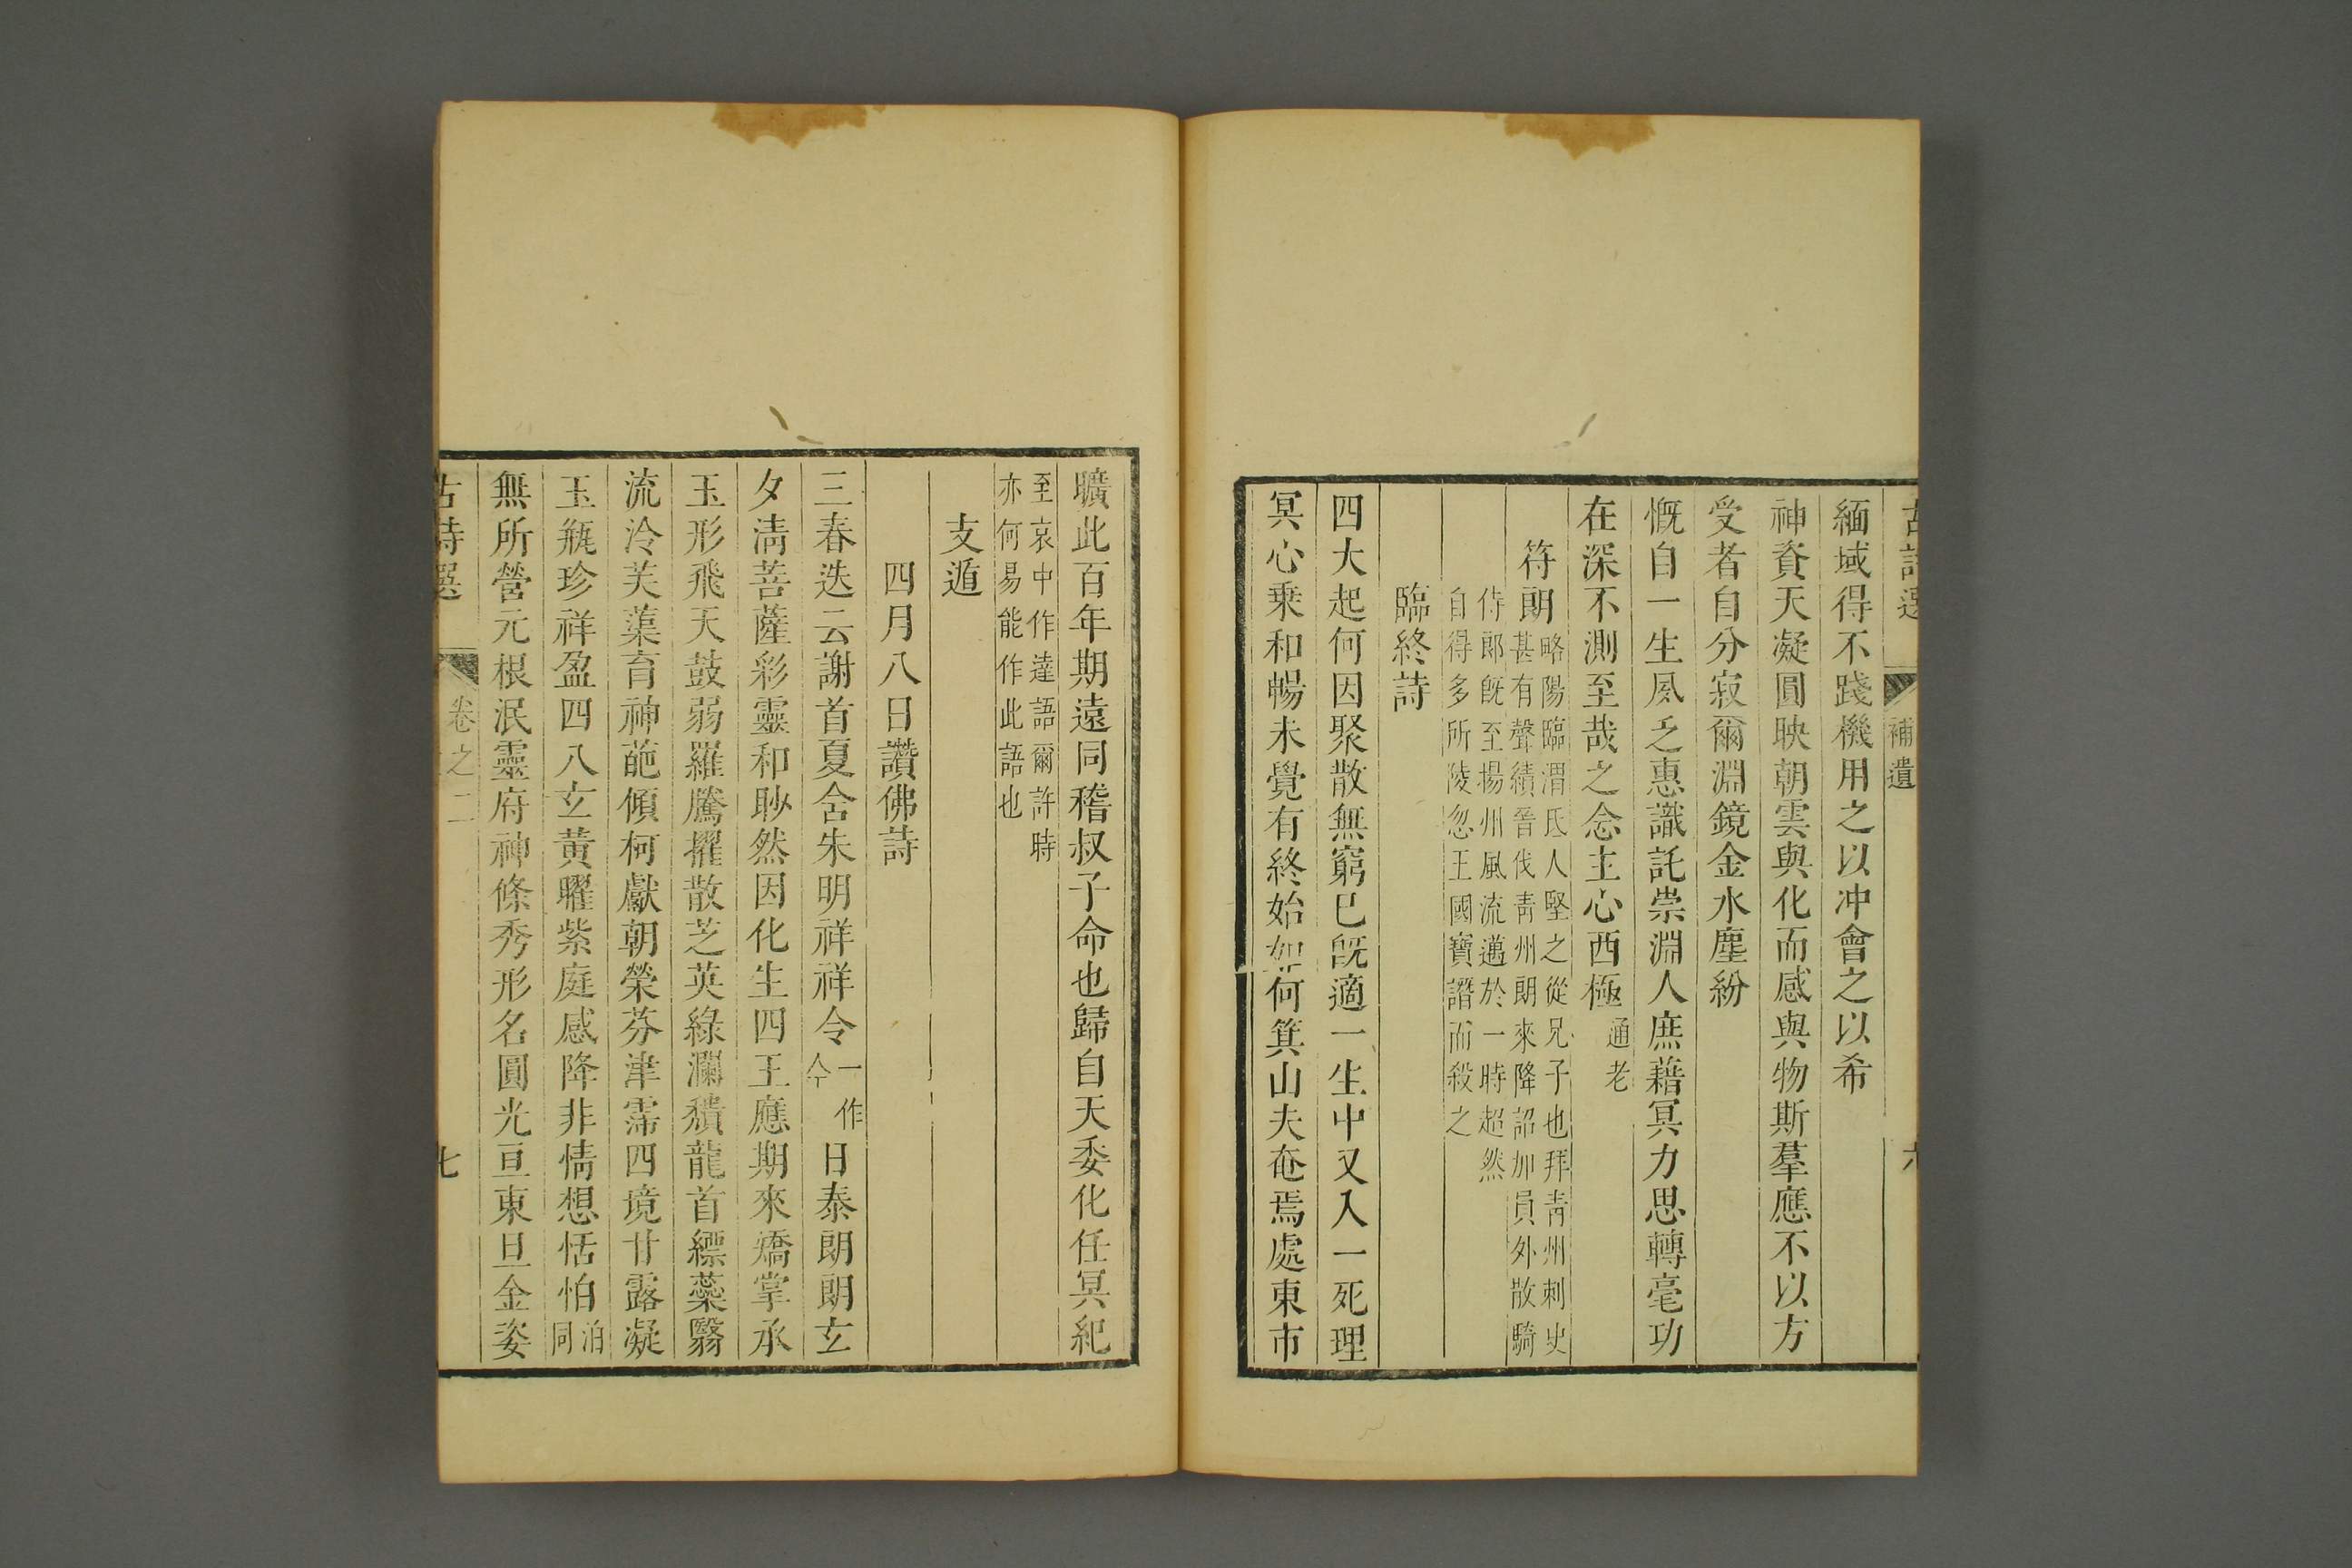 古詩選 補遺 六
緬域得不踐機用之以冲會之以希
神資天凝圓映朝雲與化而感與物斯羣應不以方
受者自分寂爾淵鏡金水塵紛
慨自一生夙乏惠識託崇淵人庶藉冥力思轉毫功
在深不測至哉之念主心西極通老
符朗略陽臨渭氐人堅之從兄子也拜靑州刺史
甚有聲績晉伐靑州朗來降詔加員外散騎
侍郎旣至揚州風流邁於一時超然
自得多所陵忽王國寶譖而殺之
臨終詩
四大起何因聚散無窮巳旣適一生中又入一死理
冥心乗和暢未覺有終始如何箕山夫奄焉處東市
曠此百年期遠同稽叔子命也歸自天委化任冥紀
至哀中作達語爾許時
亦何易能作此語也
支遁
四月八日讚佛詩
三春迭云謝首夏含朱明祥祥令一作今日泰朗朗玄
夕淸菩薩彩靈和眇然因化生四王應期來矯掌承
玉形飛天鼓弱羅騰擢散芝英綠瀾穨龍首縹蘂翳
流泠芙蕖育神葩傾柯獻朝榮芬津霈四境甘露凝
玉瓶珍祥盈四八玄黃曜紫庭感降非情想恬怕泊同
無所營元根泯靈府神條秀形名圓光亘東旦金姿
古詩選 卷之二 七